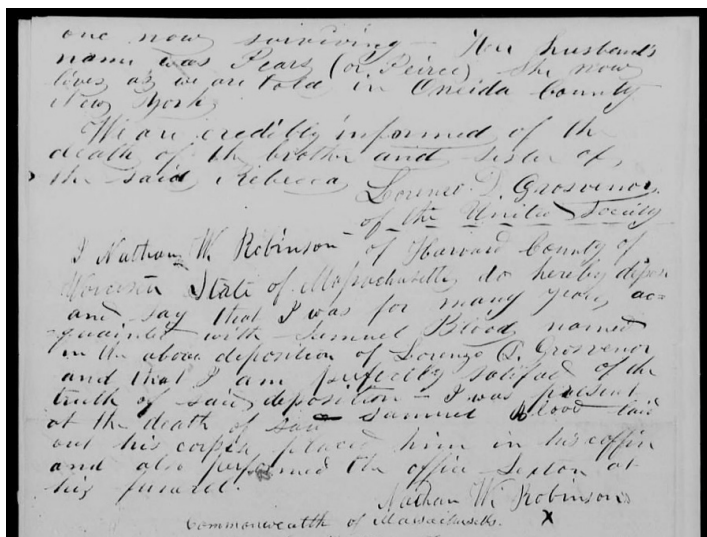 one now surviving – Her husband's
name was Pears (or Peirce) she now
lives as we are told in Oneida County
New York
We are credibly informed of the
death of the brother and sister of
the said Rebecca
Lorenzo D. Grosvenor
of the United Society
I Nathan W. Robinson of Harvard County of
Worcester State of Massachusetts do hereby depose
and say that I was for many years ac=
-quainted with Samuel Blood named
in the above deposition of Lorenzo D. Grosvenor
and that I am perfectly satisfied of the
truth of said deposition – I was present
at the death of said Samuel Blood laid
out his corpse placed him in his coffin
and also performed the office Sexton at
his funeral.
Nathan W. Robinson
Commonwealth of Massachusetts. X